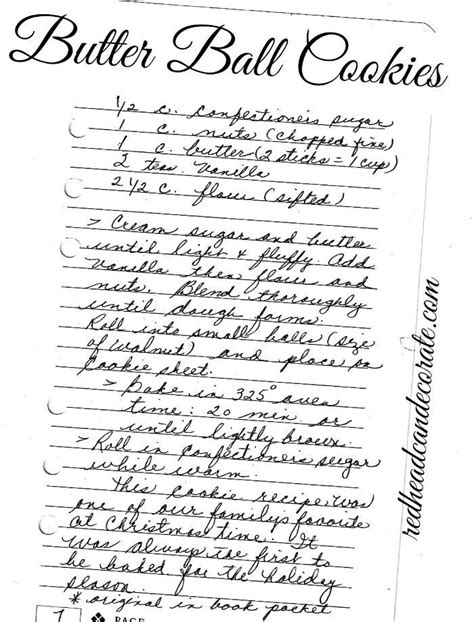 Butter Ball Cookies
1/2 c. confectioners sugar
1 c. nuts (chopped fine)
1 c. butter (2 sticks = 1 cup)
2 teas vanilla
2 1/2 c. flour (sifted)
> Cream sugar and butter
until light & fluffy. Add
vanilla then flour and
nuts. Blend thoroughly
until dough forms.
Roll into small balls (size
of walnut) and place on
cookie sheet.
> Bake in 325° oven
time: 20 min or
until lightly brown.
> Roll in confectioners sugar
while warm.
This cookie recipe was
one of our family's favorite
at Christmas time. It
was always the first to
be baked for the holiday
season.
* original in book pocket
1 ❖ PAGE
redheadcandecorate.com